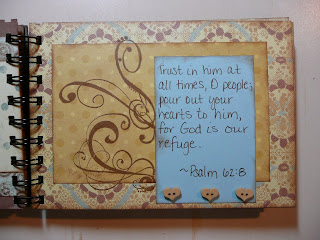 Trust in him at
all times, O people;
pour out your
hearts to him,
for God is our
refuge.
~Psalm 62:8